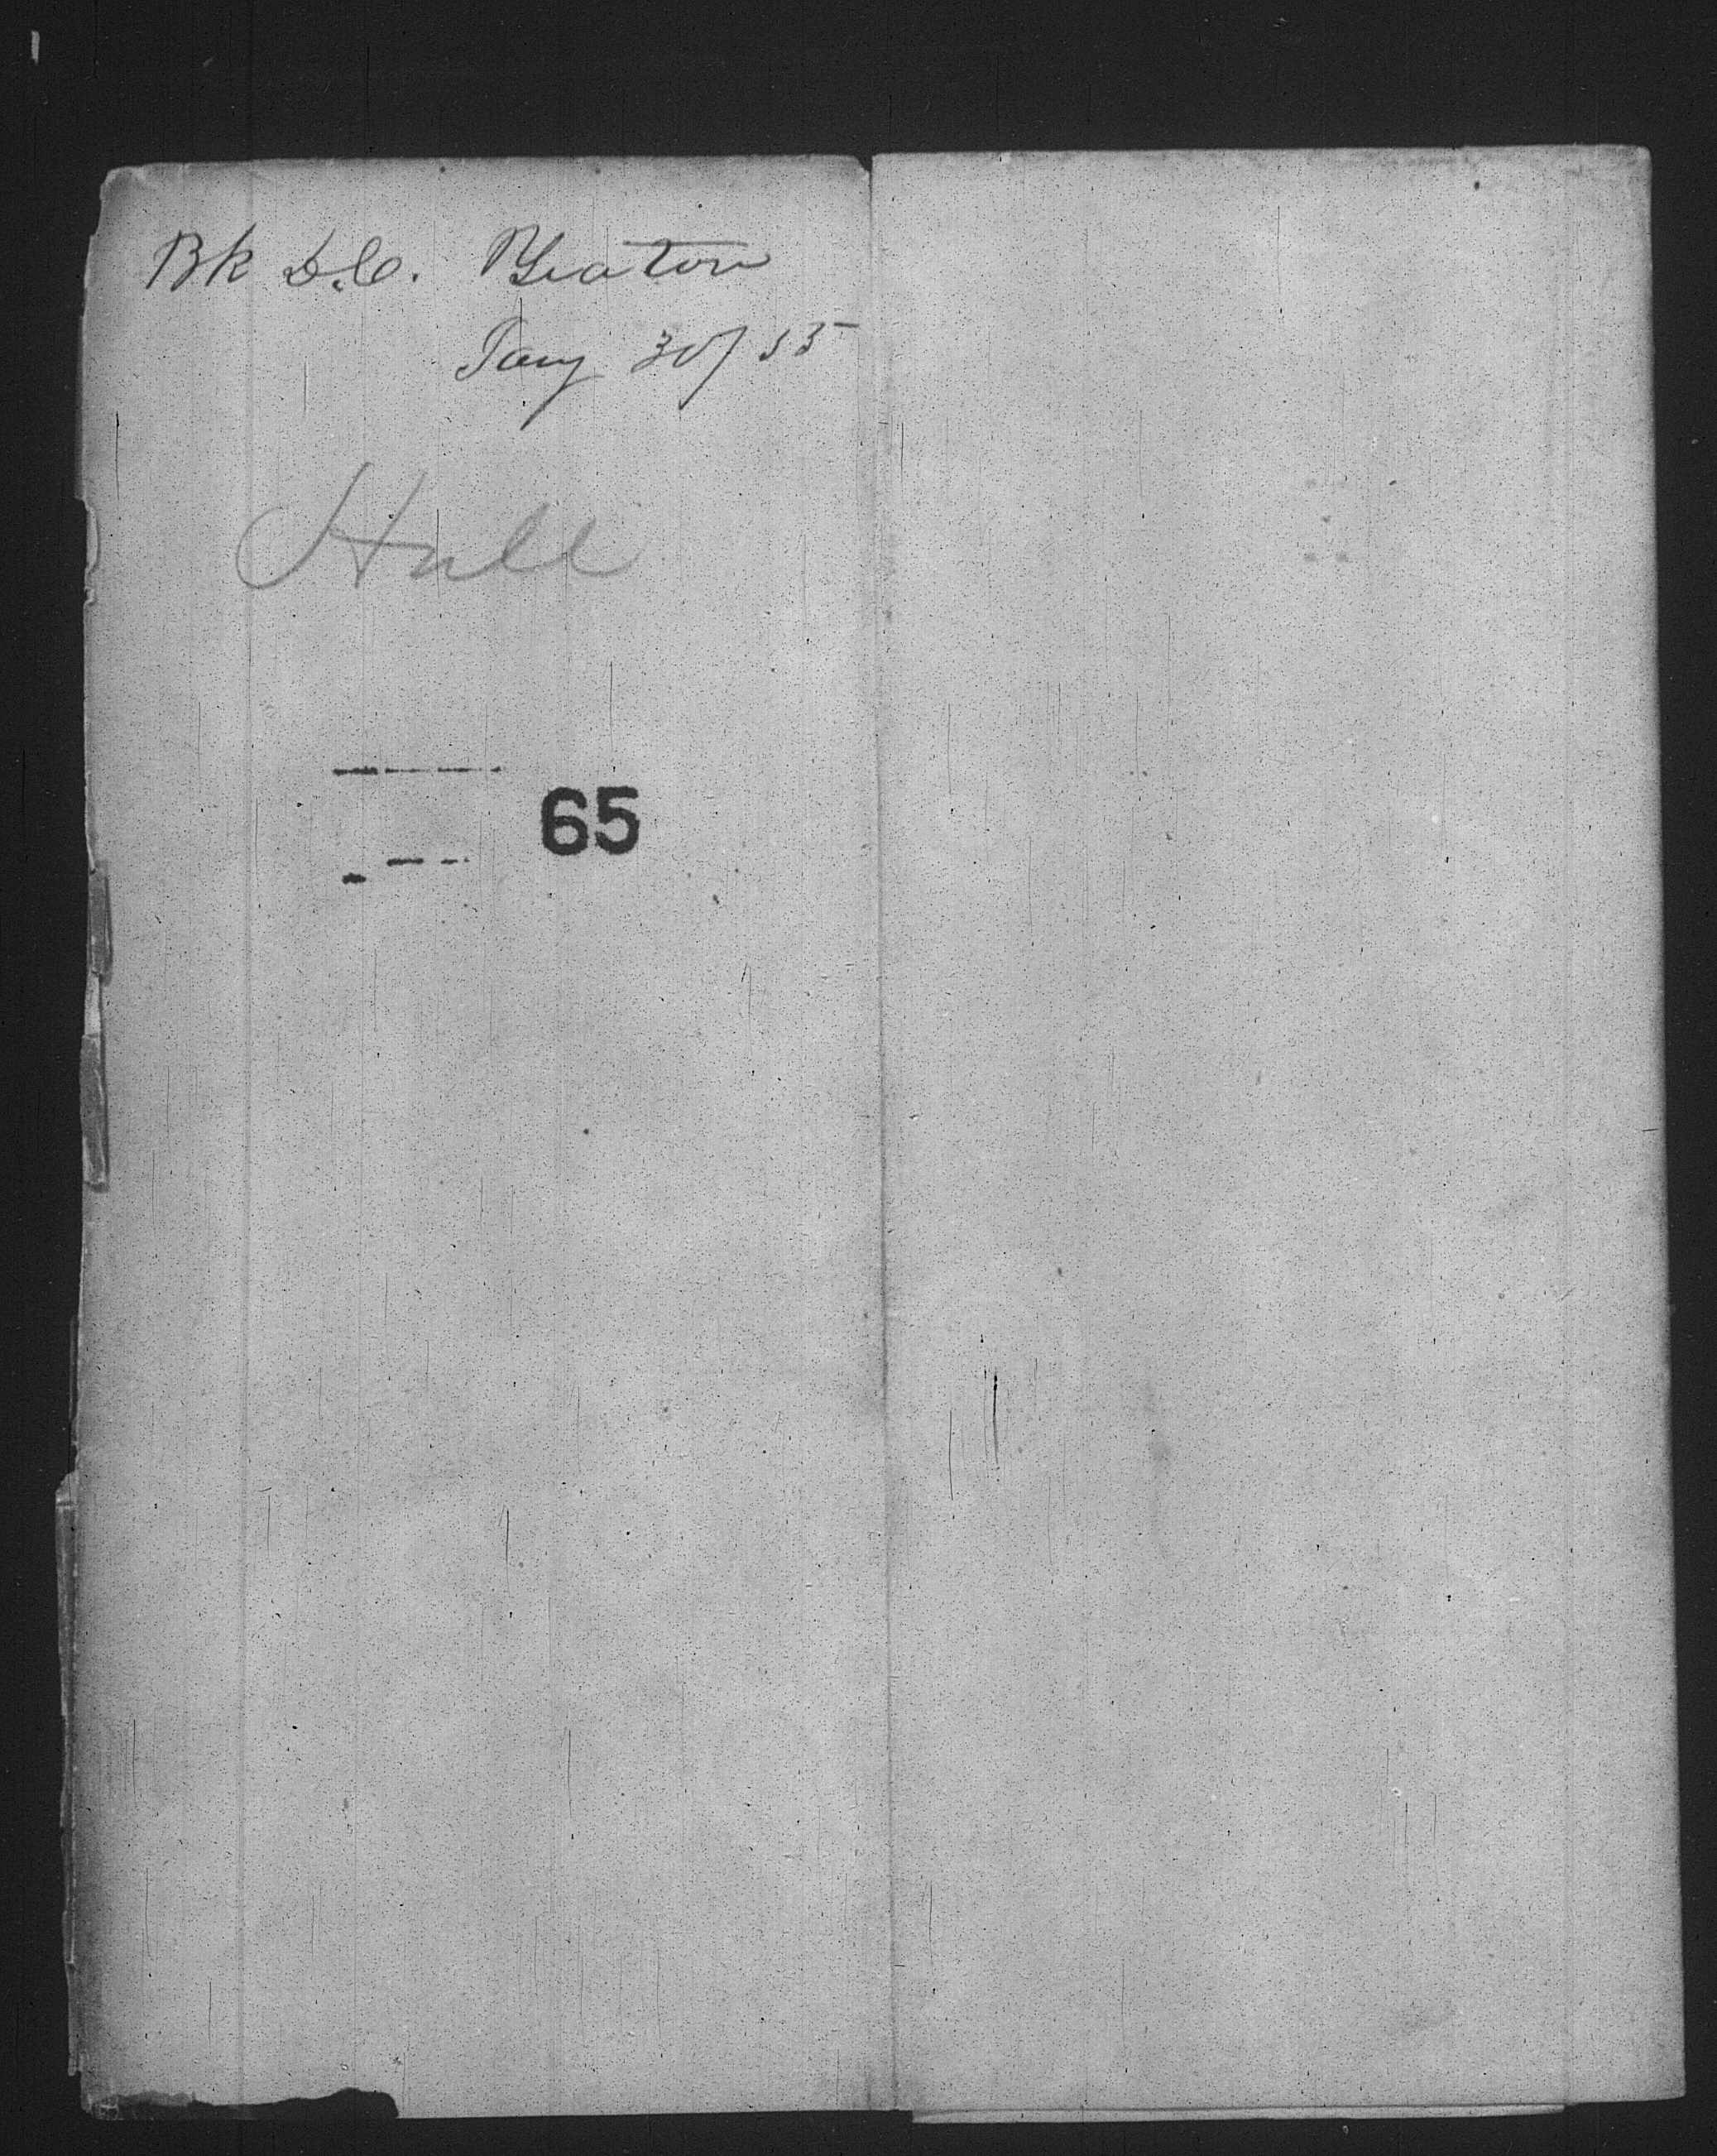 Bk D.C. Yeaton
Jany 30/55
Hull
65